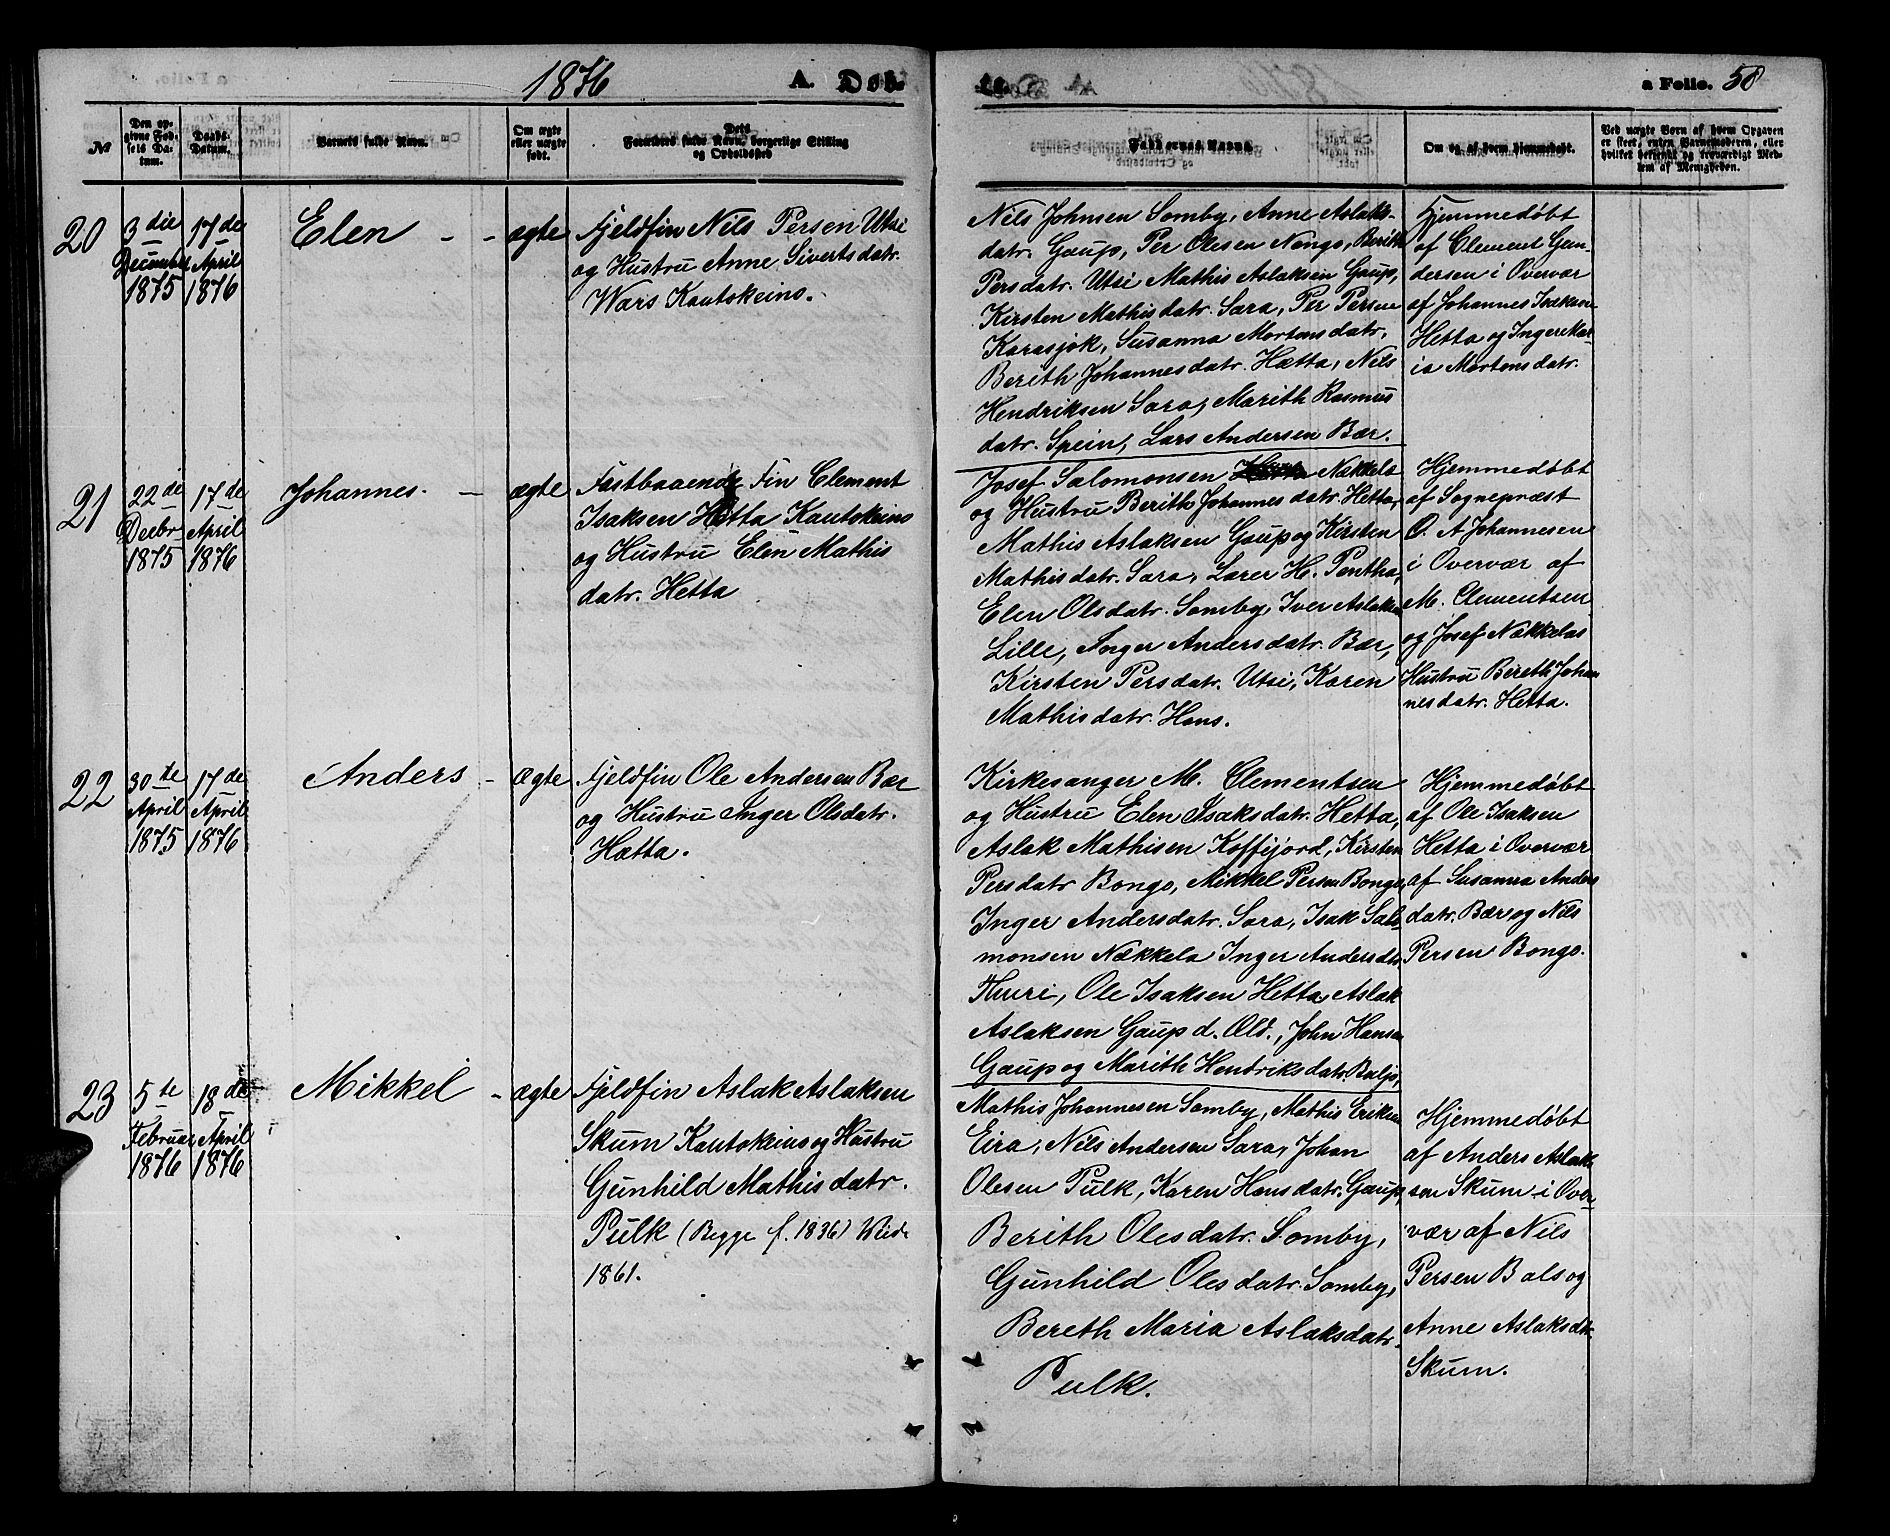 1876
A. Døb.
a Folio. 58
№
Den op-
givne Fød-
sels Da-
tum.
Daabs-
Datum.
Barnets fulde Navn.
Om ægte
eller uægte
født.
Dets
Forældres fulde Navn, borgerlige Stilling
og Opholdssted
Faddernes Navne.
Om og af hvem hjemmedøbt.
Ved uægte Børn af hvem Opgaven
er skeet, enten Barnemoderen, eller
hvilket bekjendt og troværdigt Med-
lem af Menigheden.
20
3die
December
1875
17de
April
1876
Elen
ægte
Fjeldfin Nils Persen Utsi
og Hustru Anne Sivertsdatr.
Wars Kautokeino.
Nils Johnsen Somby, Anne Aslaks-
datr. Gaup, Per Olesen Nango, Berith
Persdatr. Utsi Mathis Aslaksen Gaup,
Kirsten Mathisdatr. Sara, Per Persen
Karasjok, Susanna Mortensdatr,
Berith Johannesdatr. Hætta, Nils
Hendriksen Sara, Marith Rasmus
datr. Spein, Lars Andersen Bær.
Hjemmedøbt
af Clement Gun-
dersen i Overvær
af Johannes Isaksen
Hetta og Inger Mar-
ia Mortensdatr.
21
22de
Decbr
1875
17de
April
1876
Johannes.
ægte
Fastboaende Fin Clement
Isaksen Hetta Kautokeino
og Hustru Elen Mathis
datr. Hetta
Josef Salomonsen Nækkela
og Hustru Berith Johannesdatr. Hetta,
Mathis Aslaksen Gaup og Kirsten
Mathisdatr. Sara, Lærer H. Pentha,
Elen Olsdatr. Somby, Iver Aslaksen
Lille, Inger Andersdatr. Bær,
Kirsten Persdatr. Utsi, Karen
Mathisdatr. Hans.
Hjemmedøbt
af Sognepræst
O. A Johannesen
i Overvær af
M. Clementsen
og Josef Nækkelas
Hustru Bereth Johan
nesdatr. Hetta.
22
30te
April
1875
17de
April
1876
Anders
Ægte
Fjeldfin Ole Andersen Bær
og Hustru Inger Olsdatr.
Hætta.
Kirkesanger M. Clementsen
og Hustru Elen Isaksdatr. Hetta,
Aslak Mathisen Koffijord, Kirsten
Persdatr Bongo, Mikkel Persen Bongo,
Inger Andersdatr. Sara, Isak Salo-
monsen Nækkela Inger Andersdtr.
Thuri, Ole Isaksen Hetta, Aslak
Aslaksen Gaup d. Æld., John Hansen
Gaup og Marith Hendriksdatr. Baljo,
Hjemmedøbt
af Ole Isaksen
Hetta i Overvær
af Susanna Anders
datr. Bær og Nils
Persen Bongo.
23
5te
Februar
1876
18de
April
1876
Mikkel
ægte
Fjeldfin Aslak Aslaksen
Skum Kautokeino og Hustru
Gunhild Mathisdatr.
Pulk (Begge f. 1836) Viede
1861.
Mathis Johannesen Somby, Mathis Eriksen
Eira, Nils Andersen Sara, Johan
Olesen Pulk, Karen Hansdatr. Gaup,
Berith Olesdatr. Somby,
Gunhild Olesdatr. Somby,
Bereth Maria Aslaksdatr.
Pulk.
Hjemmedøbt
af Anders Aslak
sen Skum i Over
vær af Nils
Persen Bals og
Anne Aslaksdtr.
Skum.